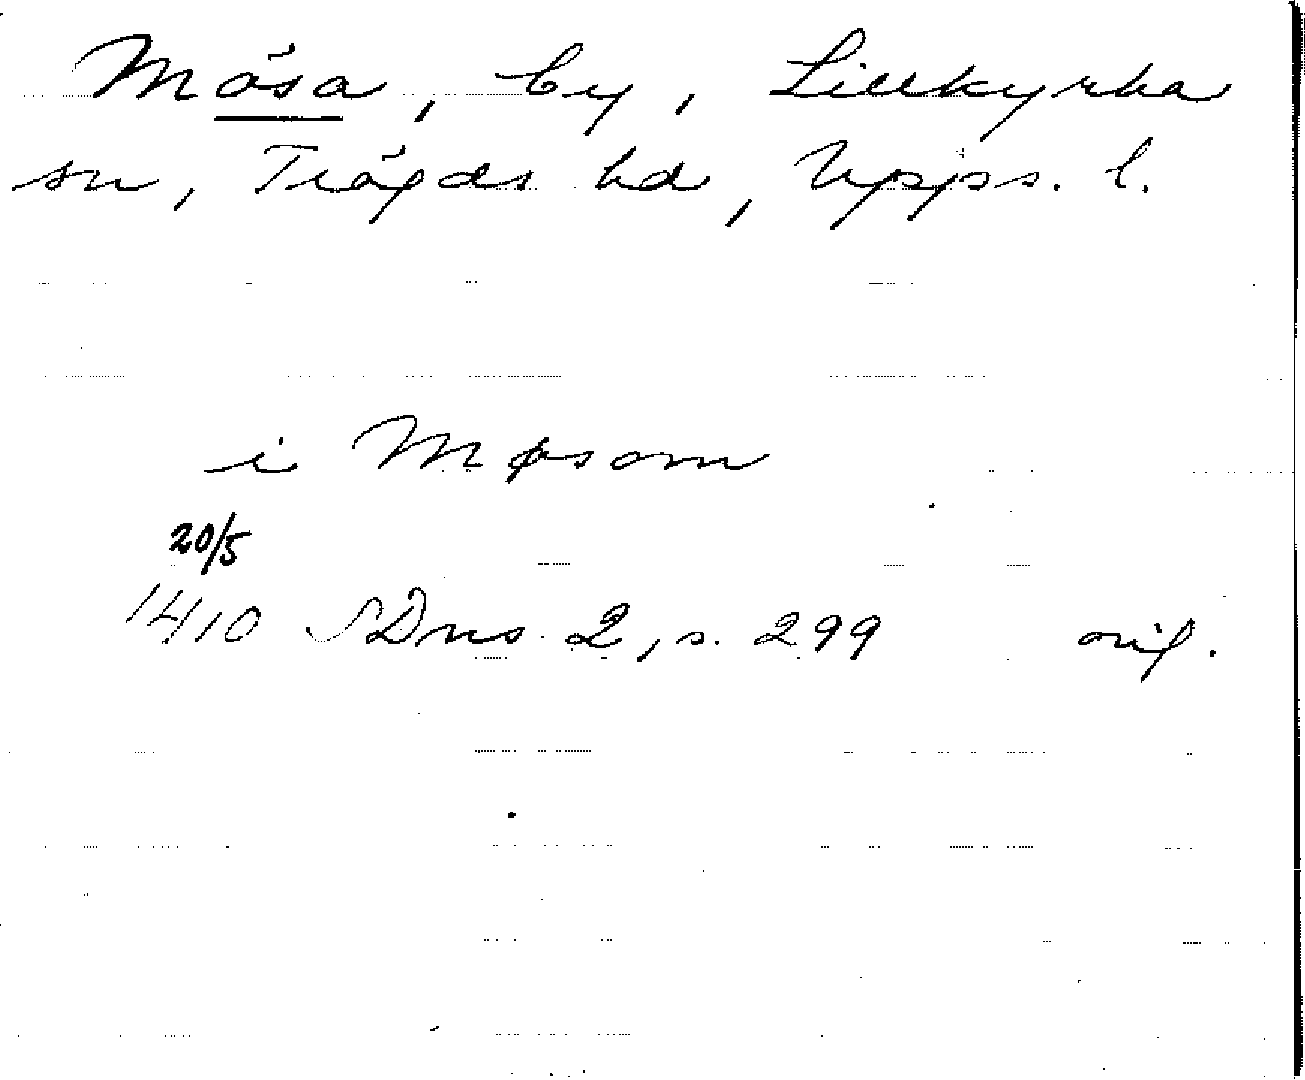 Mösa, by, Lillkyrka
sn, Trögds hd, Upps. l.
i Møsom
20/5
1410 SDns 2, s. 299 orig.